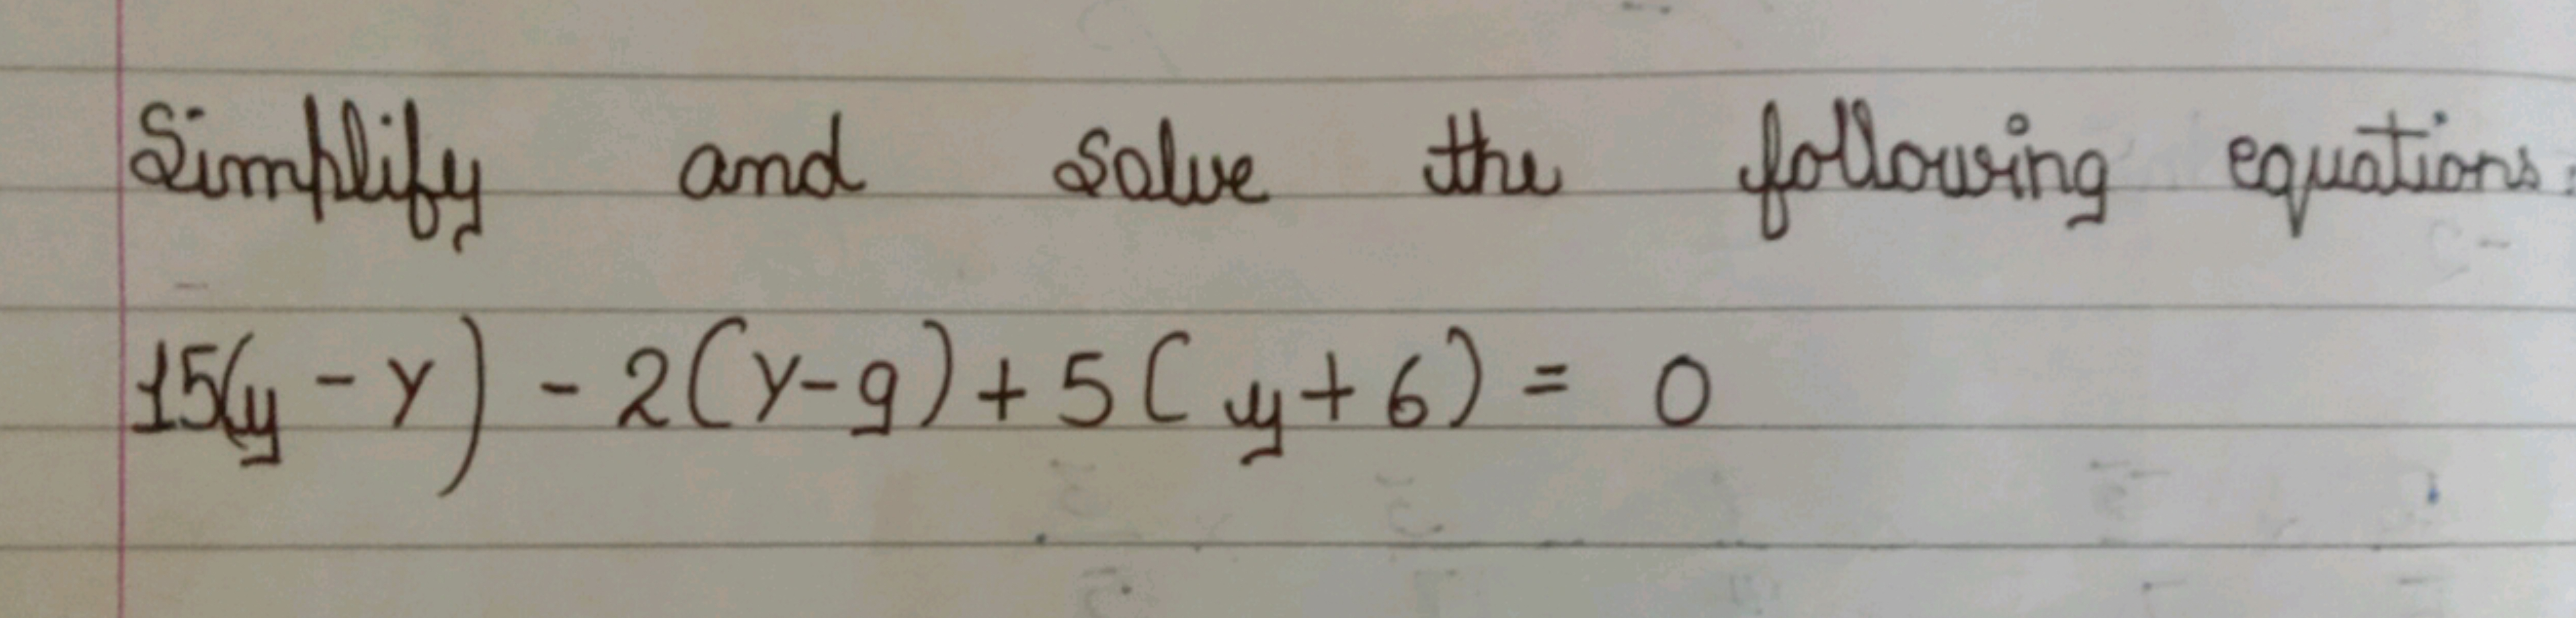 Simplify and solve the following equations:
15(y - y) - 2(y-9) + 5(y+6) = 0